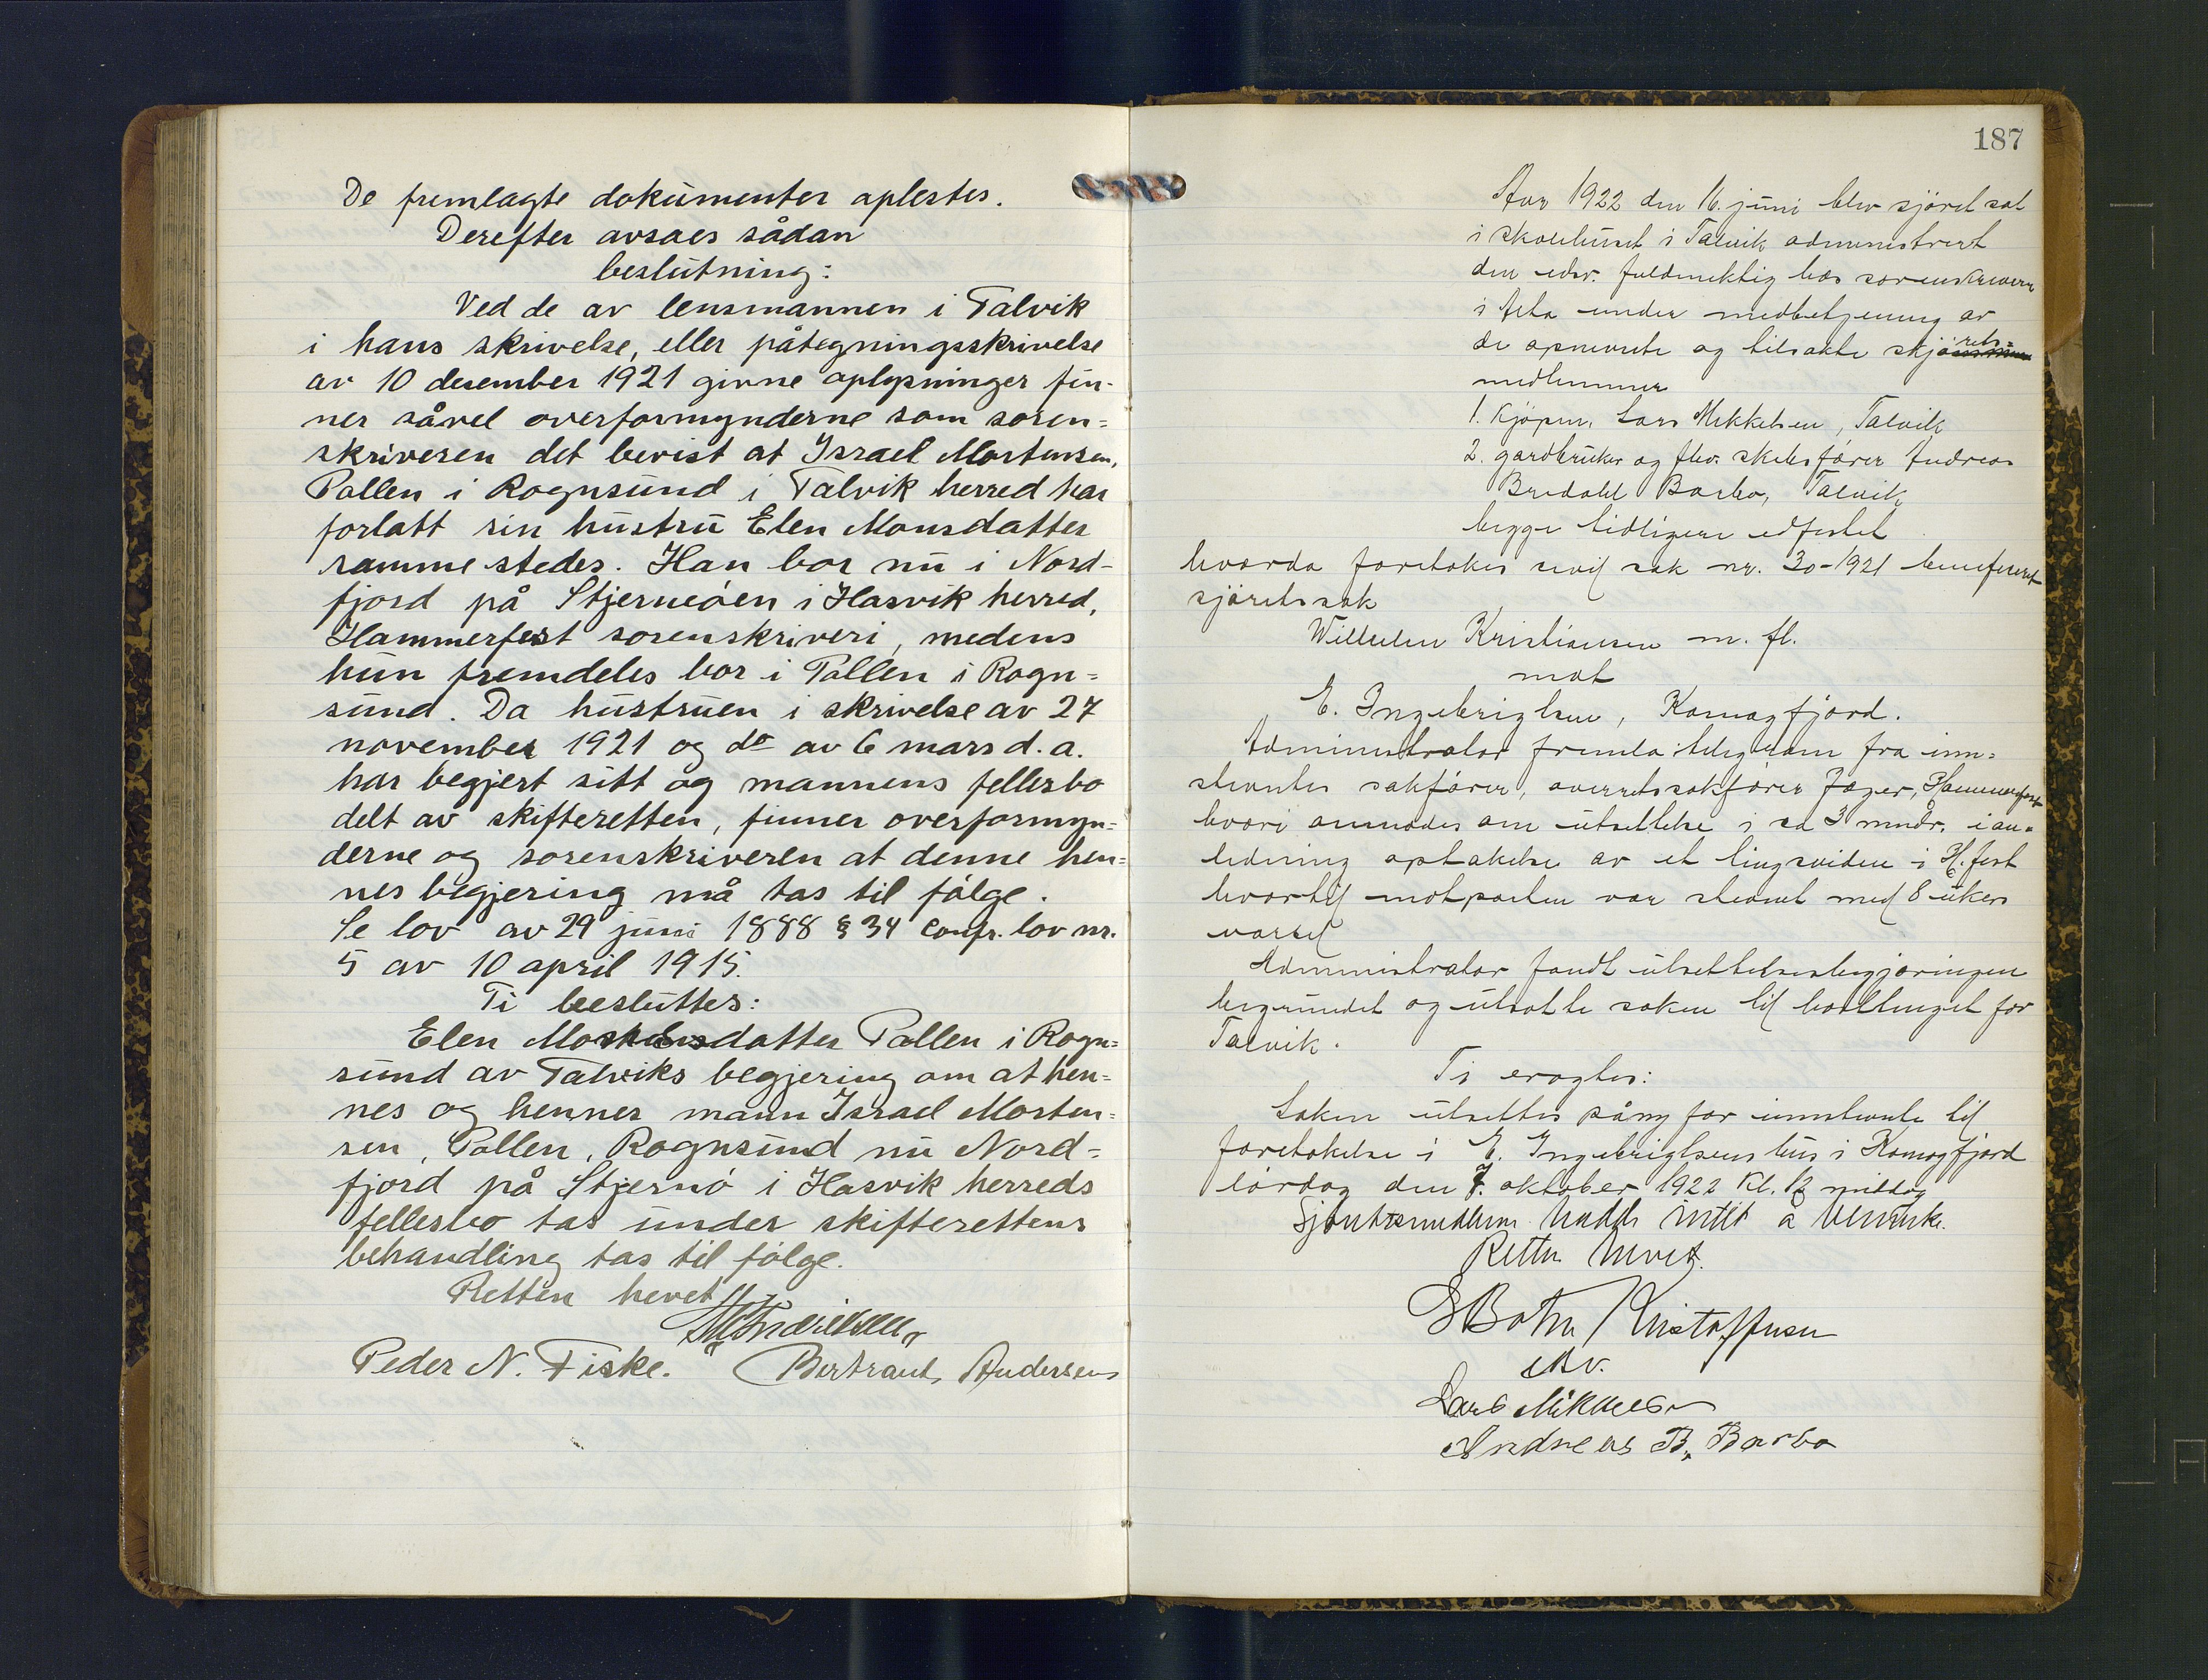 De fremlagte dokumenter oplestes.
Derefter avsaes sådan
beslutning:
Ved de av lensmannen i Talvik
i hans skrivelse, eller påtegningsskrivelse
av 10 desember 1921 givne oplysninger fin-
ner såvel overformynderne som soren=
skriveren det bevist at Israel Mortensen,
Pollen i Rognsund i Talvik herred har
forlatt sin hustru Elen Monsdatter
samme stedes. Han bor nu i Nord-
fjord på Stjerneöen i Hasvik herred,
Hammerfest sorenskriveri, medens
hun fremdeles bor i Pollen i Rogn=
sund. Da hustruen i skrivelse av 27
november 1921 og do av 6 mars d. a.
har begjert sitt og mannens fellesbo
delt av skifteretten, finner overformyn=
derne og sorenskriveren at denne hen=
nes begjering må tas til fölge.
Se lov av 29 juni 1888 § 34 confr. lov nr.
5 av 10 april 1915.
Ti besluttes:
Elen datter Pollen i Rogn=
sund av Talviks begjering om at hen=
nes og hennes mann Israel Morten=
sen, Pollen, Rognsund nu Nord=
fjord på Stjernö i Hasvik herreds
fellesbo tas under skifterettens
behandling tas til fölge.
Retten hevet
Peder N. Fiske. Bertrant Andersen
187
Aar 1922 den 16. juni blev sjöret sat
i skolehuset i Talvik administrert
den edsv. fuldmektig hos sorenskriveren
i Alta under medbetjening av
de opnevnte og tilsakte sjörets=
medlemmer
1. kjöpm. Lars Mikkelsen, Talvik
2. gardbruker og Andreas
Bredahl Barbo, Talvik
begge tidligere edfestet
hvorda foretokes sivil sak nr. 30-1921 benefisert
sjöretssak
Wilhelm Kristiansen m. fl.
mot
E. Ingebrigtsen, Komagfjord.
Administrator fremla telegram fra inn=
stevntes sakförer, overretssakförer Jæger, Hammerfest
hvori anmodes om utsettelse i ca 3 mndr. i an=
ledning optakelse av et tingsvidne i H.fest
hvortil motparten var stevnet med 8 ukers
varsel
Administrator fandt utsettelsesbegjæringen
begrundet og utsatte saken til hösttinget for
Talvik.
Ti eragtes:
Saken utsettes påny for innstevnte til
foretakelse i E. Ingebrigtsens hus i Komagfjord
lördag den 7. oktober 1922 kl. 12 middag
Sjöretsmedlem. hadde intet å bemerke.
Retten hevet.
E Bohn Kristoffersen
edsv.
Lars Mikkelsen
Andreas B. Barbo